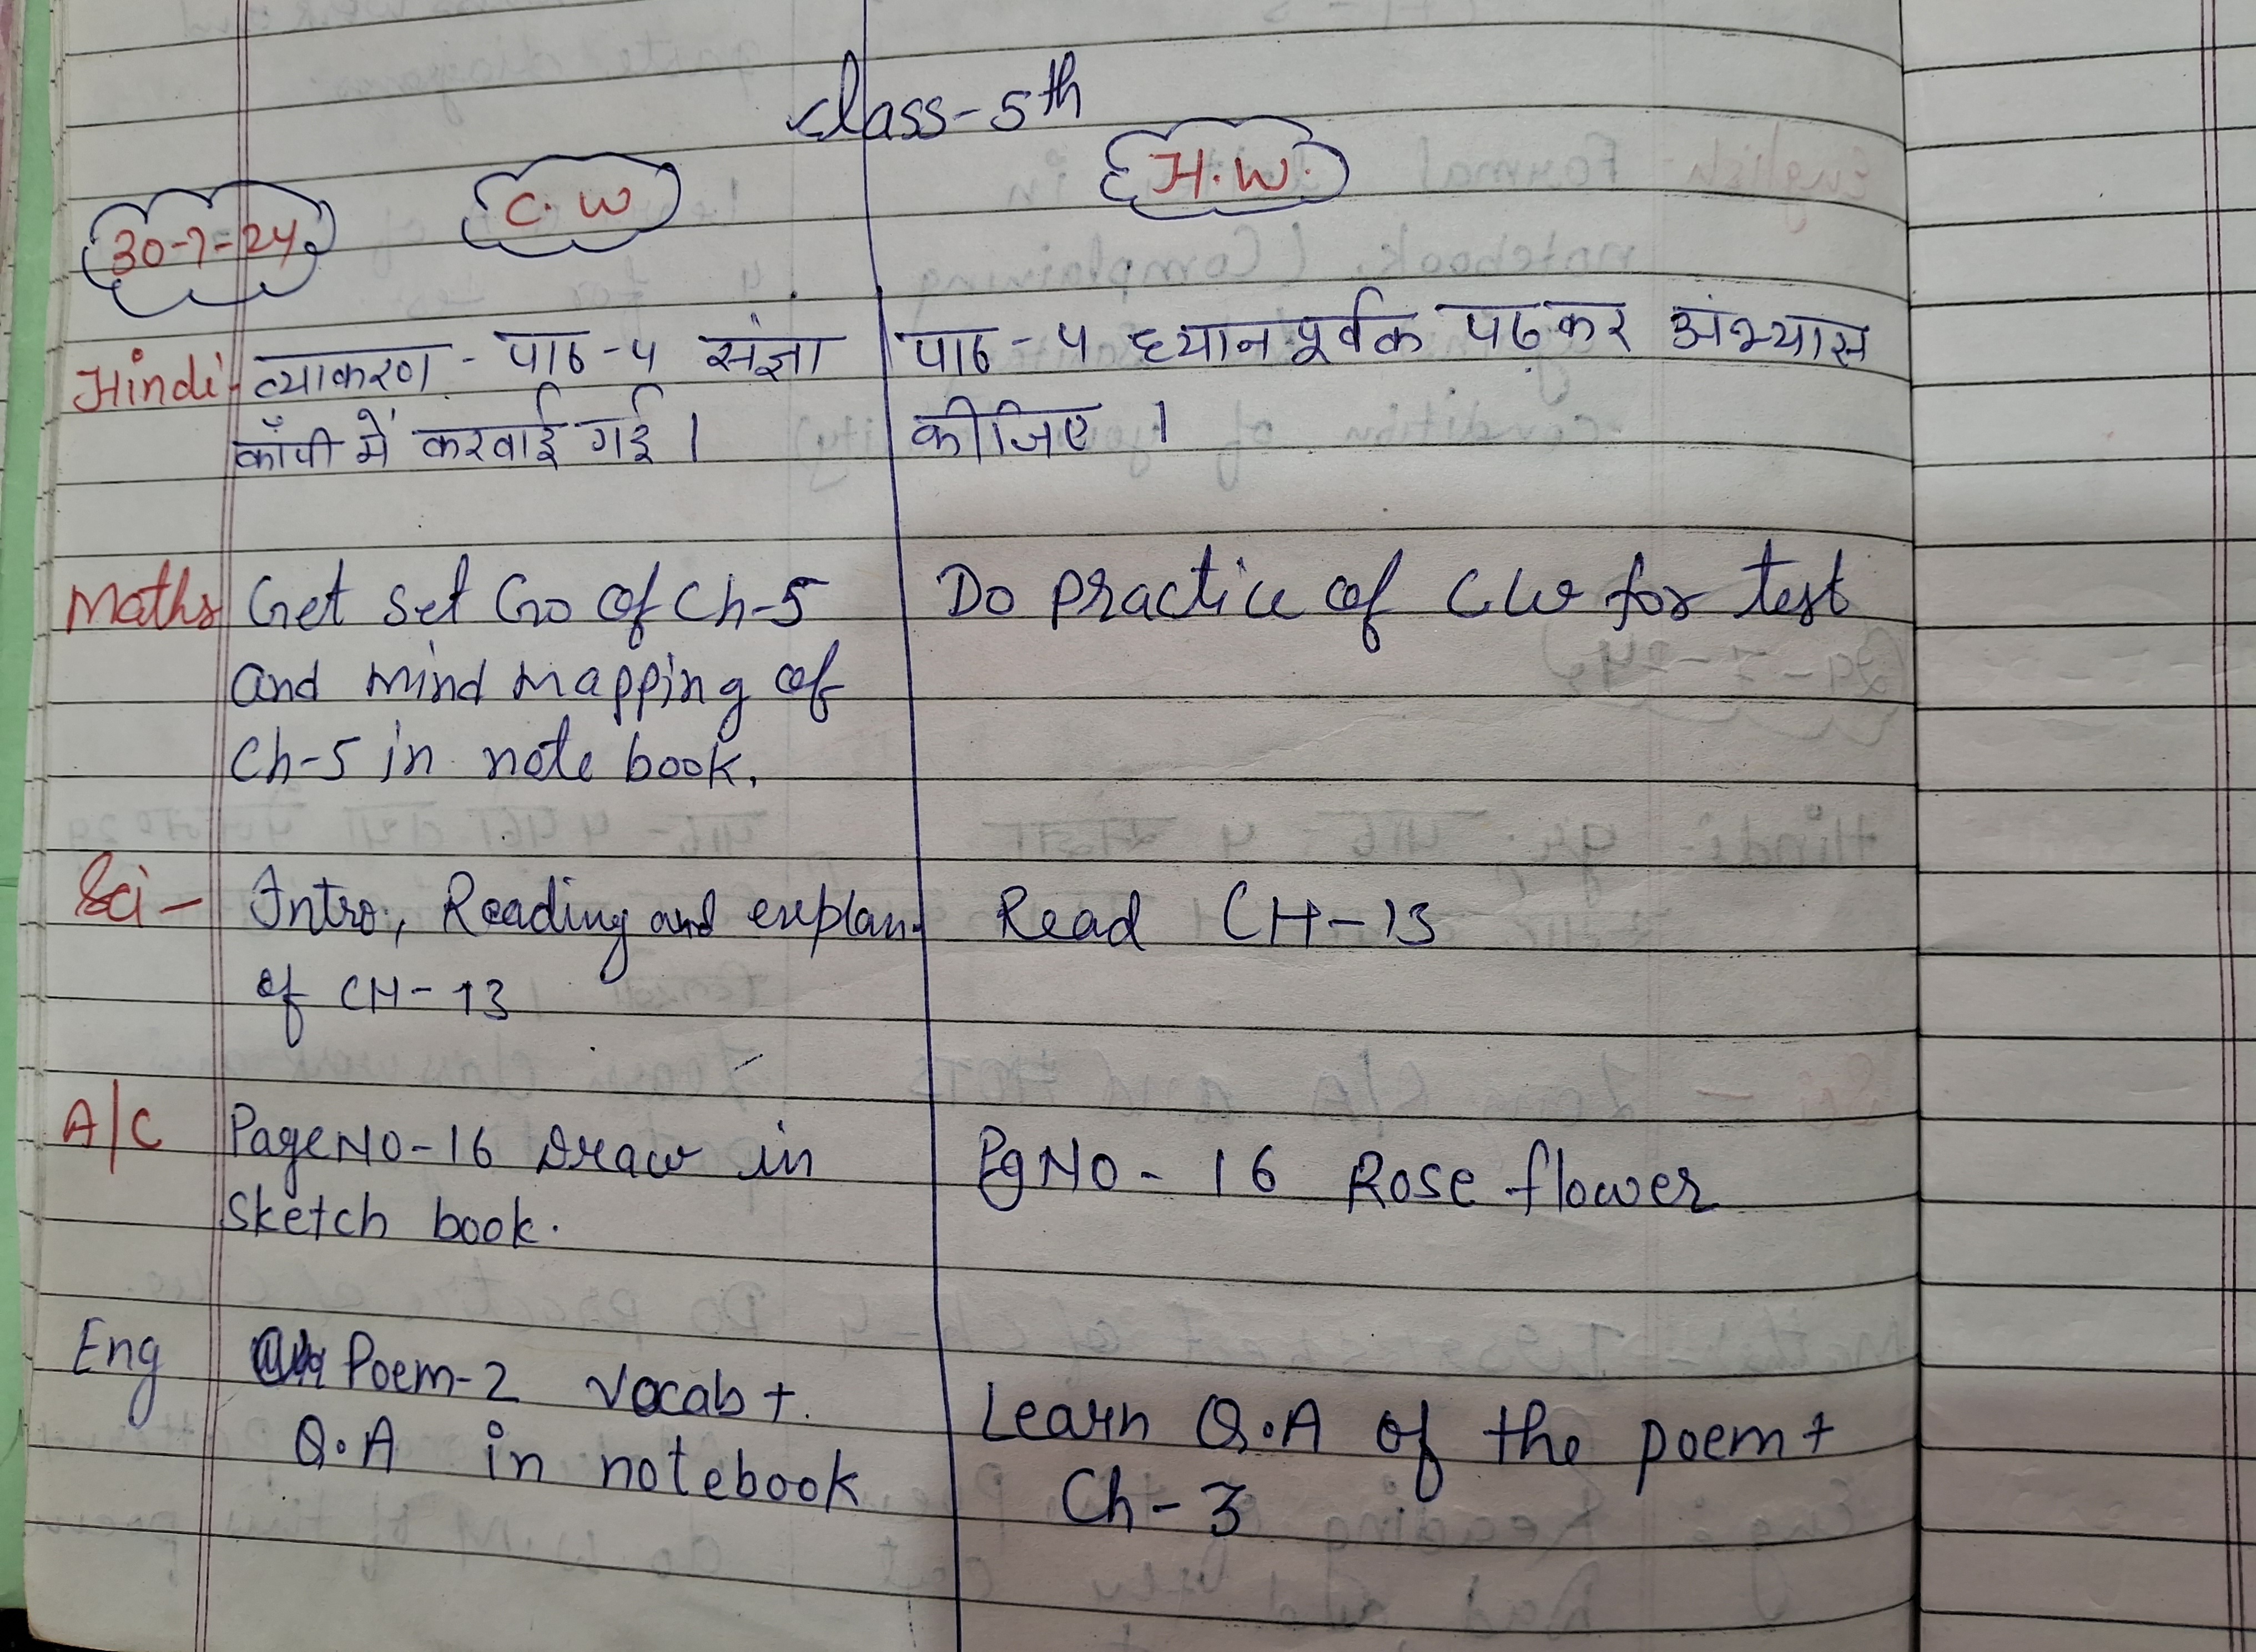 Class-5th
30-7-24 C.W H.W.
Hindi- व्याकरण - पाठ-५ संज्ञा पाठ-५ ध्यानपूर्वक पढ़कर अभ्यास
कॉपी में करवाई गई। कीजिए ।
Maths Get set Go of Ch-5 Do practice of C.W for test
and mind mapping of
Ch-5 in note book.
Sci- Intro, Reading and explan. Read CH-13
of CH-13
A/C Page NO-16 Draw in Pg NO- 16 Rose flower
sketch book.
Eng Poem-2 vocab + Learn Q.A of the poem +
Q.A in notebook Ch-3